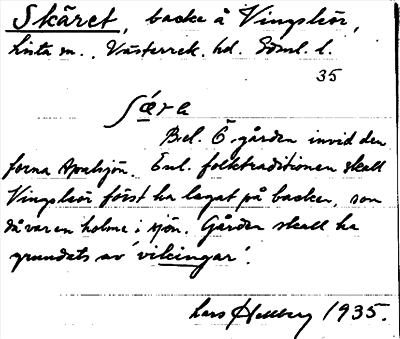 Skäret, backe å Vingsleör,
Lista sn., Västerrek. hd. Sdml. l.
35
ʃæ̀ra
Bel. Ö. gården invid den
forna Apalsjön. Enl. folktraditionen skall
Vingsleör först ha legat på backen, som
då var en holme i sjön. Gården skall ha
grundats av 'vikingar'.
Lars Hellberg 1935.